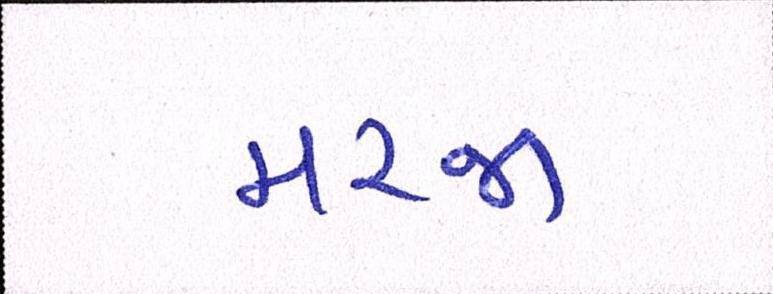 મરજા